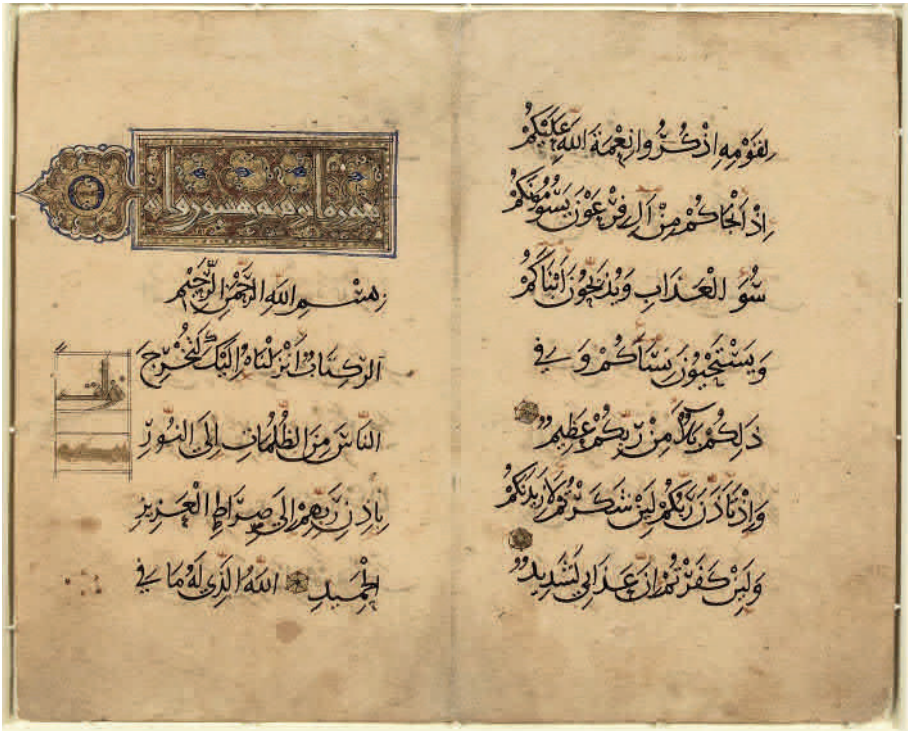 لِقَوْمِهِ اذْكُرُوا نِعْمَةَ اللهِ عَلَيْكُمْ
اِذْ اَنْجَاكُمْ مِنْ آلِ فِرْعَوْنَ يَسُومُونَكُمْ
سُوَ الْعَذَابِ وَيُذَبِّحُونَ اَبْنَاكُمْ
وَيَسْتَحْيُونَ نِسَاكُمْ وَفِي
ذَلِكُمْ بَلَآٌ مِنْ رَبِّكُمْ عَظِيمٌ
وَاِذْ تَاَذَّنَ رَبُّكُمْ لَئِنْ شَكَرْتُمْ لَازِيدَنَّكُمْ
وَلَئِنْ كَفَرْتُمْ اِنَّ عَذَابِي لَشَدِيدٌ
سورة ابرهيم
بِسْمِ اللهِ الرَّحْمٰنِ الرَّحِيْمِ
الٓر كِتَابٌ اَنْزَلْنَاهُ اِلَيْكَ لِتُخْرِجَ
النَّاسَ مِنَ الظُّلُمَاتِ اِلَى النُّورِ
بِاِذْنِ رَبِّهِمْ اِلَى صِرَاطِ الْعَزِيزِ
الْحَمِيدِ اللهُ الَّذِي لَهُ مَا فِي